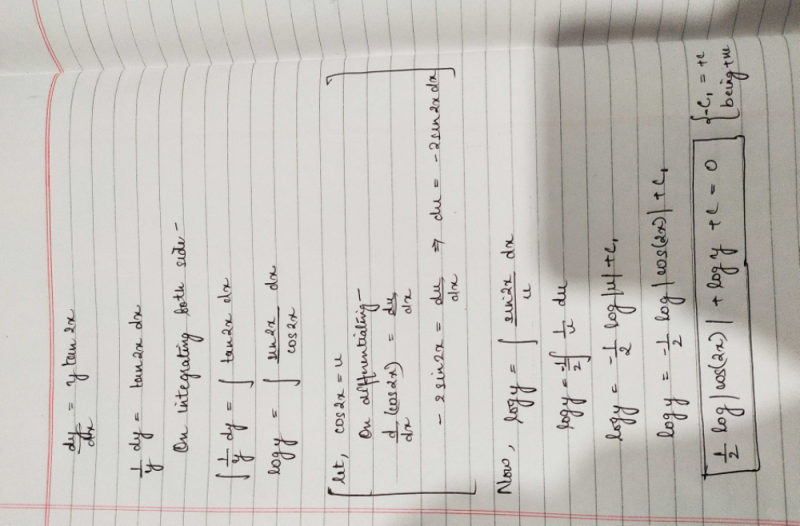 dy/dx = y tan2x
1/y dy = tan2x dx
On integrating both side -
∫ 1/y dy = ∫ tan2x dx
log y = ∫ sin2x/cos2x dx
let, cos2x = u
On diffrentiating -
d/dx (cos2x) = du/dx
- 2 sin2x = du/dx ⇒ du = -2 sin2x dx
Now, log y = ∫ sin2x/u dx
log y = -1/2 ∫ 1/u du
log y = -1/2 log |u| + c₁
log y = -1/2 log |cos(2x)| + c₁
1/2 log |cos(2x)| + log y + c = 0 { -c₁ = +c
being +ve